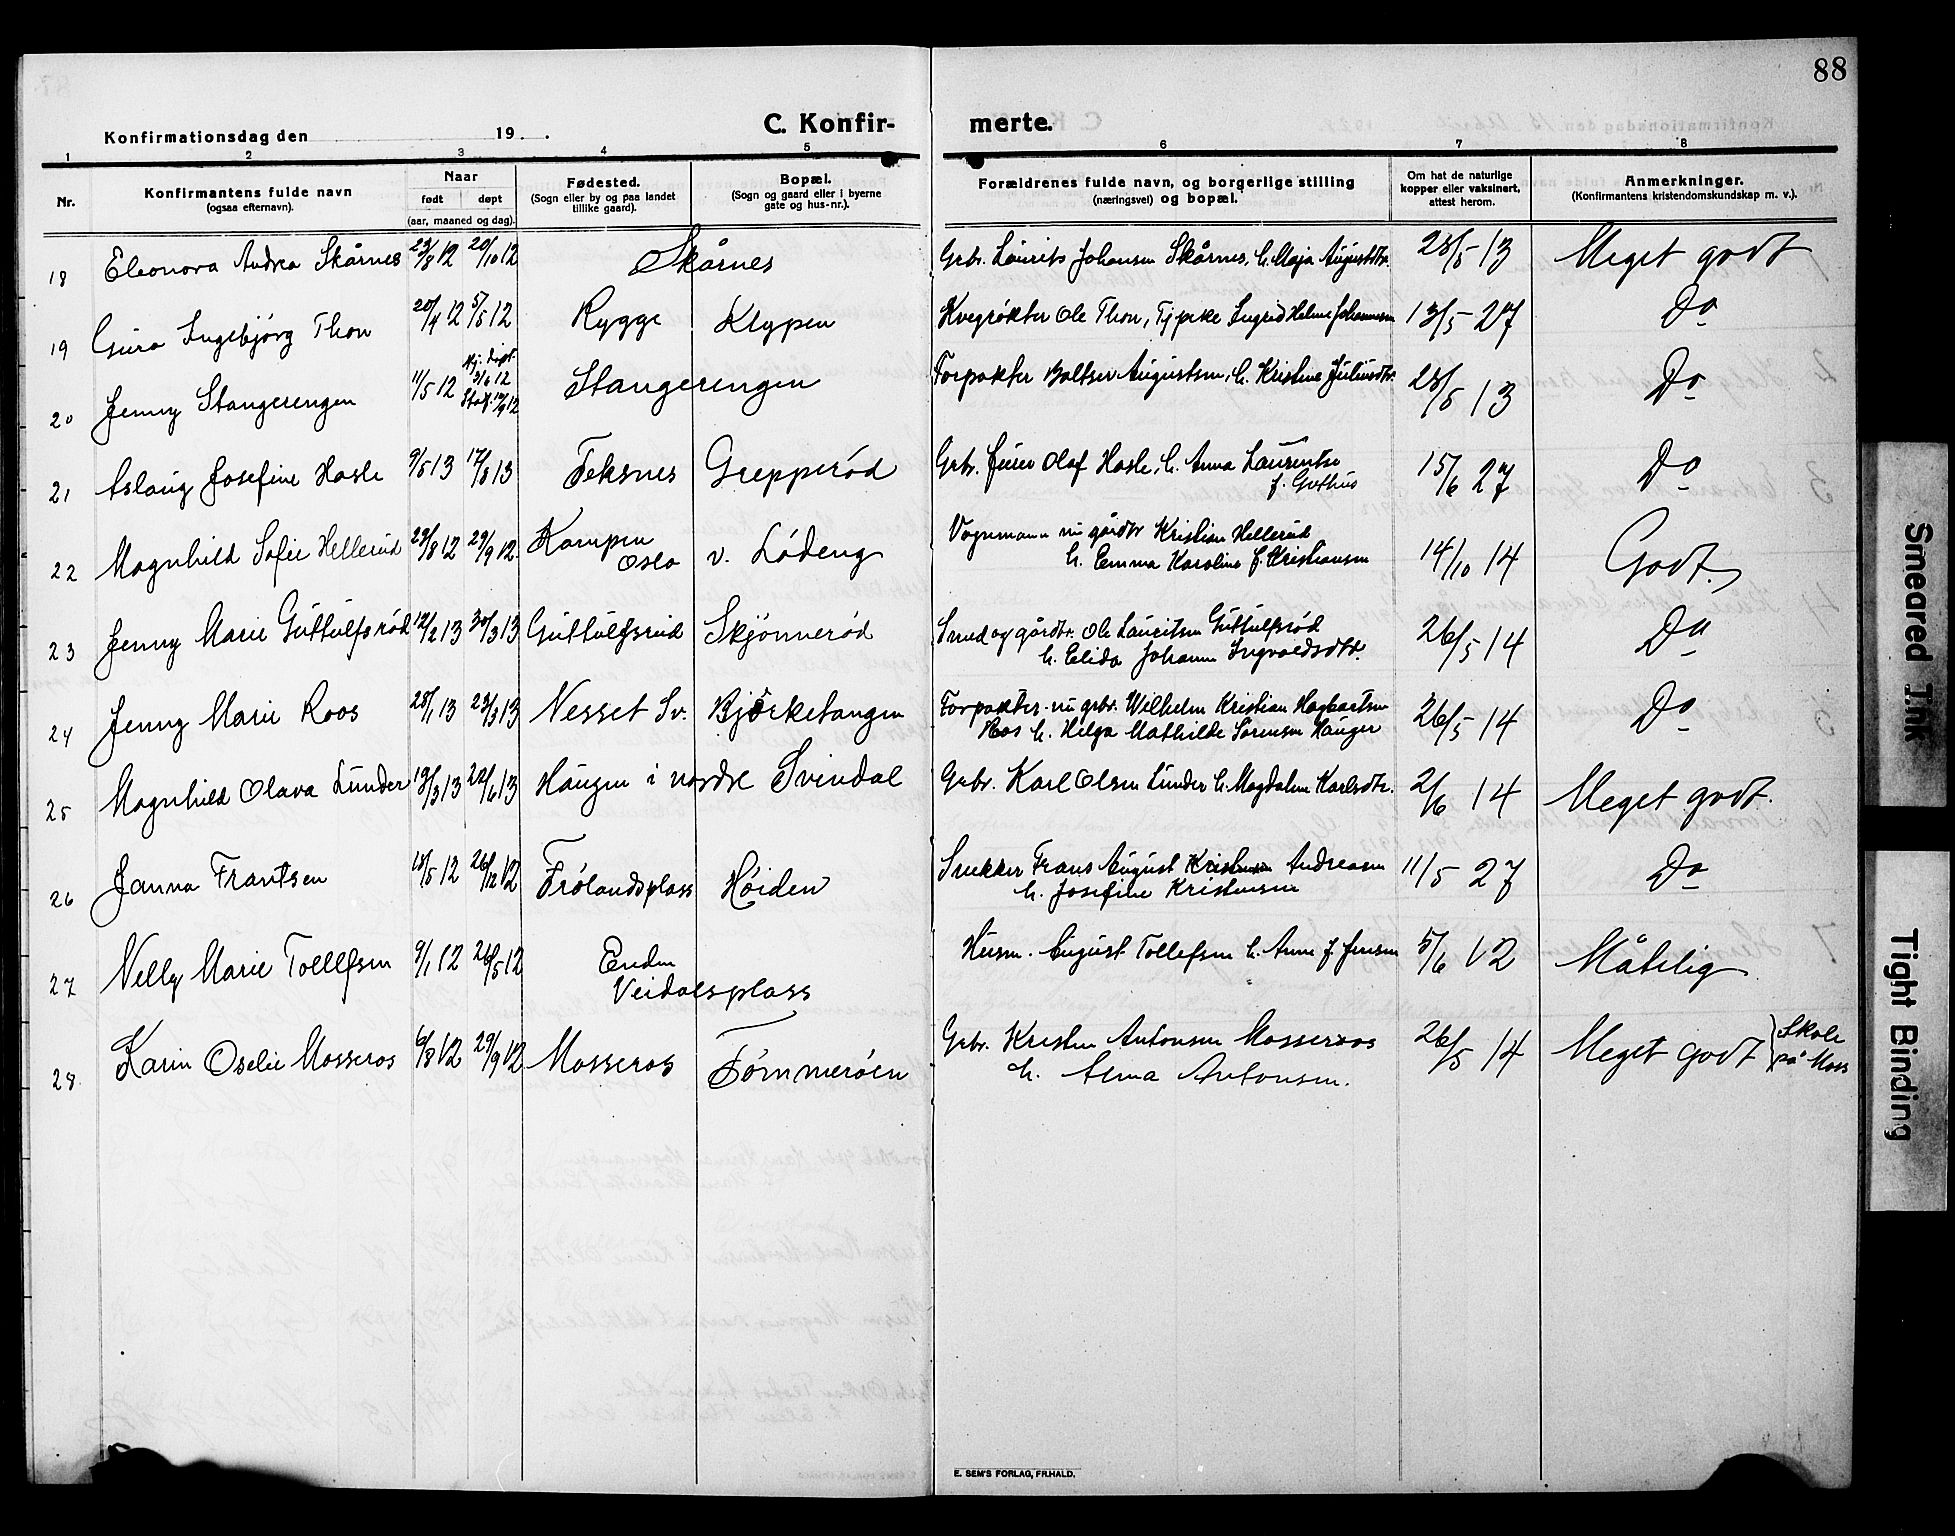 88
Konfirmationsdag den 19 . C. Konfir- merte.
1 2 3 4 5 6 7 8
Nr. Konfirmantens fulde navn (ogsaa efternavn). Naar født døpt (aar, maaned og dag). Fødested. (Sogn eller by og paa landet tillike gaard). Bopæl. (Sogn og gaard eller i byerne gate og hus-nr.). Forældrenes fulde navn, og borgerlige stilling (næringsvei) og bopæl. Om hat de naturlige kopper eller vaksinert, attest herom. Anmerkninger. (Konfirmantens kristendomskundskap m. v.).
18 Eleonora Andrea Skårnes 23/8 12 20/10 12 Skårnes Grbr. Laurits Johansen Skårnes, h. Maja Augustdtr. 28/5 13 Meget godt
19 Guro Ingebjörg Thon 20/4 12 5/5 12 Rygge Klypen Kvegrøkter Ole Thon, Tj.pike Ingrid Helene Johannesen 13/5 27 Do
20 Jenny Stangerengen 11/5 12 Hj. døpt 3/6 12 Stadf. 12/9 12 Stangerengen Forpakter Baltser Augustsen, h. Kristine Juliusdtr. 28/5 13 Do
21 Aslaug Josefine Hasle 9/5 13 17/8 13 Teksnes Grepperød Grbr. feier Olaf Hasle, h. Anna Laurentse
f. Guthus 15/6 27 Do
22 Magnhild Sofie Hellerud 29/8 12 29/9 12 Kampen Oslo v. Lødeng Vognmann nu gårdbr Kristian Hellerud
h. Emma Karoline f. Kristiansen 14/10 14 Godt.
23 Jenny Marie Guttulfsrød 12/2 13 30/3 13 Guttulfsrud Skjönnerød Smed og gårdbr. Ole Lauritsen Guttulfsrød
h. Elida Johanne Ingvaldsdtr. 26/5 14 Do
24 Jenny Marie Roos 28/1 13 23/3 13 Nesset Sv. Björketangen Forpakter nu grbr. Wilhelm Kristian Hagbartsen
Ros h. Helga Mathilde Sørensen Hauger 26/5 14 Do
25 Magnhild Olava Lunder 19/3 13 22/6 13 Haugen i nordre Svindal Grbr. Karl Olsen Lunder h. Magdalene Karlsdtr. 2/6 14 Meget godt.
26 Janna Frantsen 15/5 12 26/12 12 Frølandsplass Høiden Snekker Frans August Andreasen
h. Josefine Kristensen 11/5 27 Do
27 Nelly Marie Tollefsen 9/1 12 26/5 12 Enden
Veidalsplass Husm. August Tollefsen h. Anne f. Jensen 5/6 12 Måtelig
28 Karin Oselie Mosseros 6/8 12 29/9 12 Mosseros Tømmerøen Grbr. Kristen Antonsen Mosseros
h. Alma Antonsen. 26/5 14 Meget godt Skole
på Moss
E. SEM'S FORLAG, FR.HALD.
Smeared Ink
Tight Binding